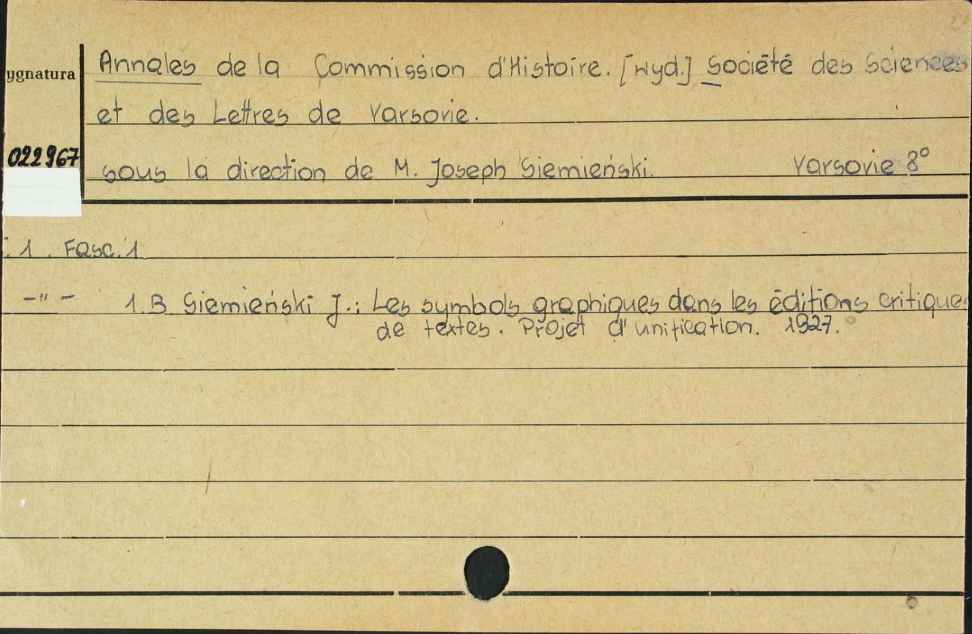 ygnatura
Annales de la Commission d'Histoire. [wyd.] Société des Sciences
et des Lettres de Varsovie.
022967
sous la direction de M. Joseph Siemieński. Varsovie 8°
. 1. Fasc. 1
-"- 1.B Siemieński J.: Les symbols graphiques dans les éditions critiques
de textes. Projet d'unification. 1927.